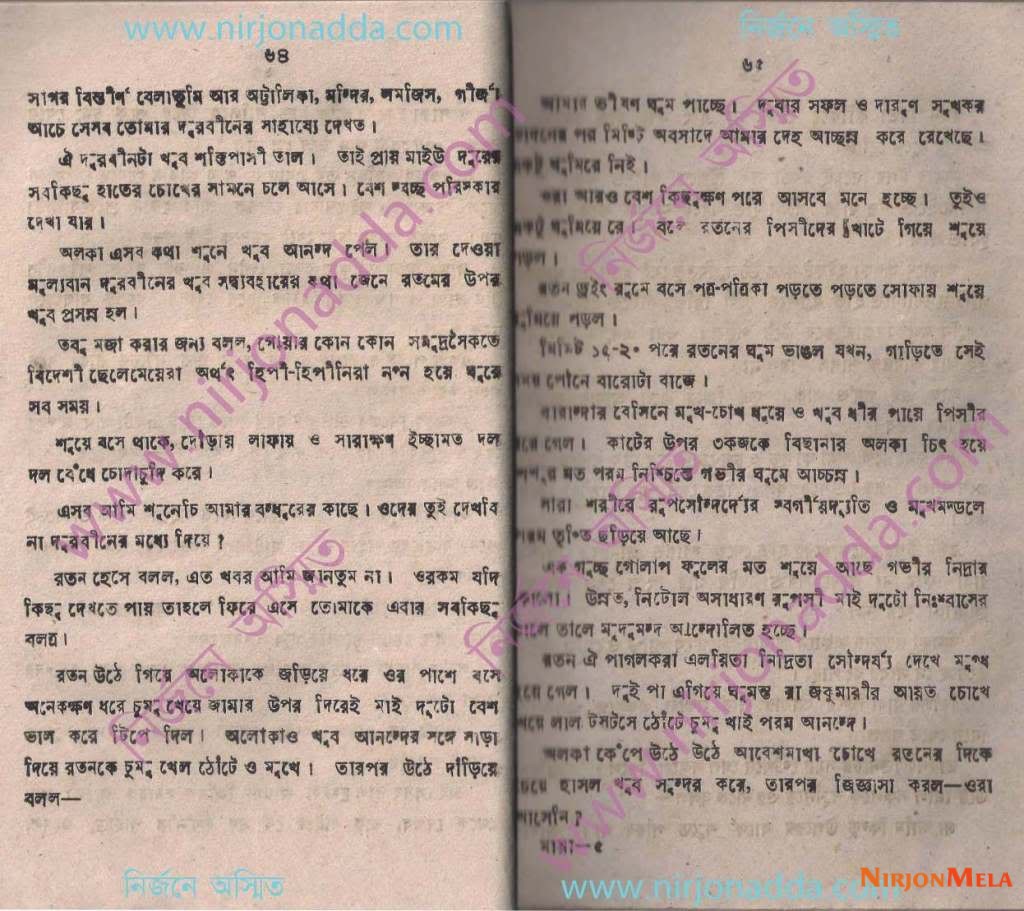 www.nirjonadda.com
৬৪
সাগর বিস্তীর্ণ বেলাভূমি আর অট্টালিকা, মন্দির, মসজিস, গীর্জা
আচে সেসব তোমার দূরবীনের সাহায্যে দেখত।
ঐ দূরবীনটা খুব শক্তিপাসী তাল। তাই প্রায় মাইউ দূরের
সবকিছু হাতের চোখের সামনে চলে আসে। বেশ স্বচ্ছ পরিস্কার
দেখা যার।
অলকা এসব কথা শুনে খুব আনন্দ পেল। তার দেওয়া
মূল্যবান দূরবীনের খুব সদ্ব্যবহারের কথা জেনে রতমের উপর
খুব প্রসন্ন হল।
তবু মজা করার জন্য বলল, গোয়ার কোন কোন সমুদ্রসৈকতে
বিদেশী ছেলেমেয়েরা অর্থৎ হিপী-হিপীনিরা নগ্ন হয়ে ঘুরে
সব সময়।
শুয়ে বসে থাকে, দৌড়ায় লাফায় ও সারাক্ষণ ইচ্ছামত দল
দল বেঁধে চোদাচুদি করে।
এসব আমি শুনেচি আমার বন্ধুরের কাছে। ওদের তুই দেখবি
না দূরবীনের মধ্যে দিয়ে?
রতন হেসে বলল, এত খবর আমি জানতুম না। ওরকম যদি
কিছু দেখতে পায় তাহলে ফিরে এসে তোমাকে এবার সবকিছু
বলব।
রতন উঠে গিয়ে অলোকাকে জড়িয়ে ধরে ওর পাশে বসে
অনেকক্ষণ ধরে চুমু খেয়ে জামার উপর দিয়েই মাই দুটো বেশ
ভাল করে টিপে দিল। অলোকাও খুব আনন্দের সঙ্গে সাড়া
দিয়ে রতনকে চুমু খেল ঠোঁটে ও মুখে। তারপর উঠে দাঁড়িয়ে
বলল—
নির্জনে অস্মিত
নির্জনে অস্মিত
৬৫
আমার ভীষণ ঘুম পাচ্ছে। দুবার সফল ও দারুণ সুখকর
পর মিষ্টি অবসাদে আমার দেহ আচ্ছন্ন করে রেখেছে।
ঘুমিরে নিই।
ওরা আরও বেশ কিছুক্ষণ পরে আসবে মনে হচ্ছে। তুইও
ঘুমিয়ে রে। বলে রতনের পিসীদের খাটে গিয়ে শুয়ে
পড়ল।
রতন ড্রইং রুমে বসে পত্র-পত্রিকা পড়তে পড়তে সোফায় শুয়ে
ঘুমিয়ে পড়ল।
মিমিট ১৫-২০ পরে রতনের ঘুম ভাঙল যখন, গাড়িতে সেই
সময় পৌনে বারোটা বাজে।
বারান্দার বেসিনে মুখ-চোখ ধুয়ে ও খুব ধীর পায়ে পিসীর
ঘরে গেল। কাটের উপর ৩কজকে বিছানার অলকা চিৎ হয়ে
মত পরম নিশ্চিন্তে গভীর ঘুমে আচ্চন্ন।
সারা শরীরে রূপসৌন্দর্দ্যের স্বর্গীয়দ্যুতি ও মুখমন্ডলে
পরম তৃপ্তি ছড়িয়ে আছে।
এক গুচ্ছ গোলাপ ফুলের মত শুয়ে আছে গভীর নিদ্রার
উন্নত, নিটোল অসাধারণ রূপসী মাই দুটো নিঃশ্বাসের
তালে তালে মৃদুমন্দ আন্দোলিত হচ্ছে।
রতন ঐ পাগলকরা এলয়িতা নিদ্রিতা সৌন্দর্য্য দেখে মুগ্ধ
হয়ে গেল। দুই পা এগিয়ে ঘুমন্ত রা জকুমারীর আয়ত চোখে
লাল টসটসে ঠোঁটে চুমু খাই পরম আনন্দে।
অলকা কেঁপে উঠে উঠে আবেশমাখা চোখে রতনের দিকে
চেয়ে হাসল খুব সুন্দর করে, তারপর জিজ্ঞাসা করল—ওরা
আসেনি?
মামী—৫
www.nirjonadda.com
NIRJONMELA
www.nirjonadda.com
নির্জনে অস্মিত
নির্জনে অস্মিত
নির্জনে অস্মিত
www.nirjonadda.com